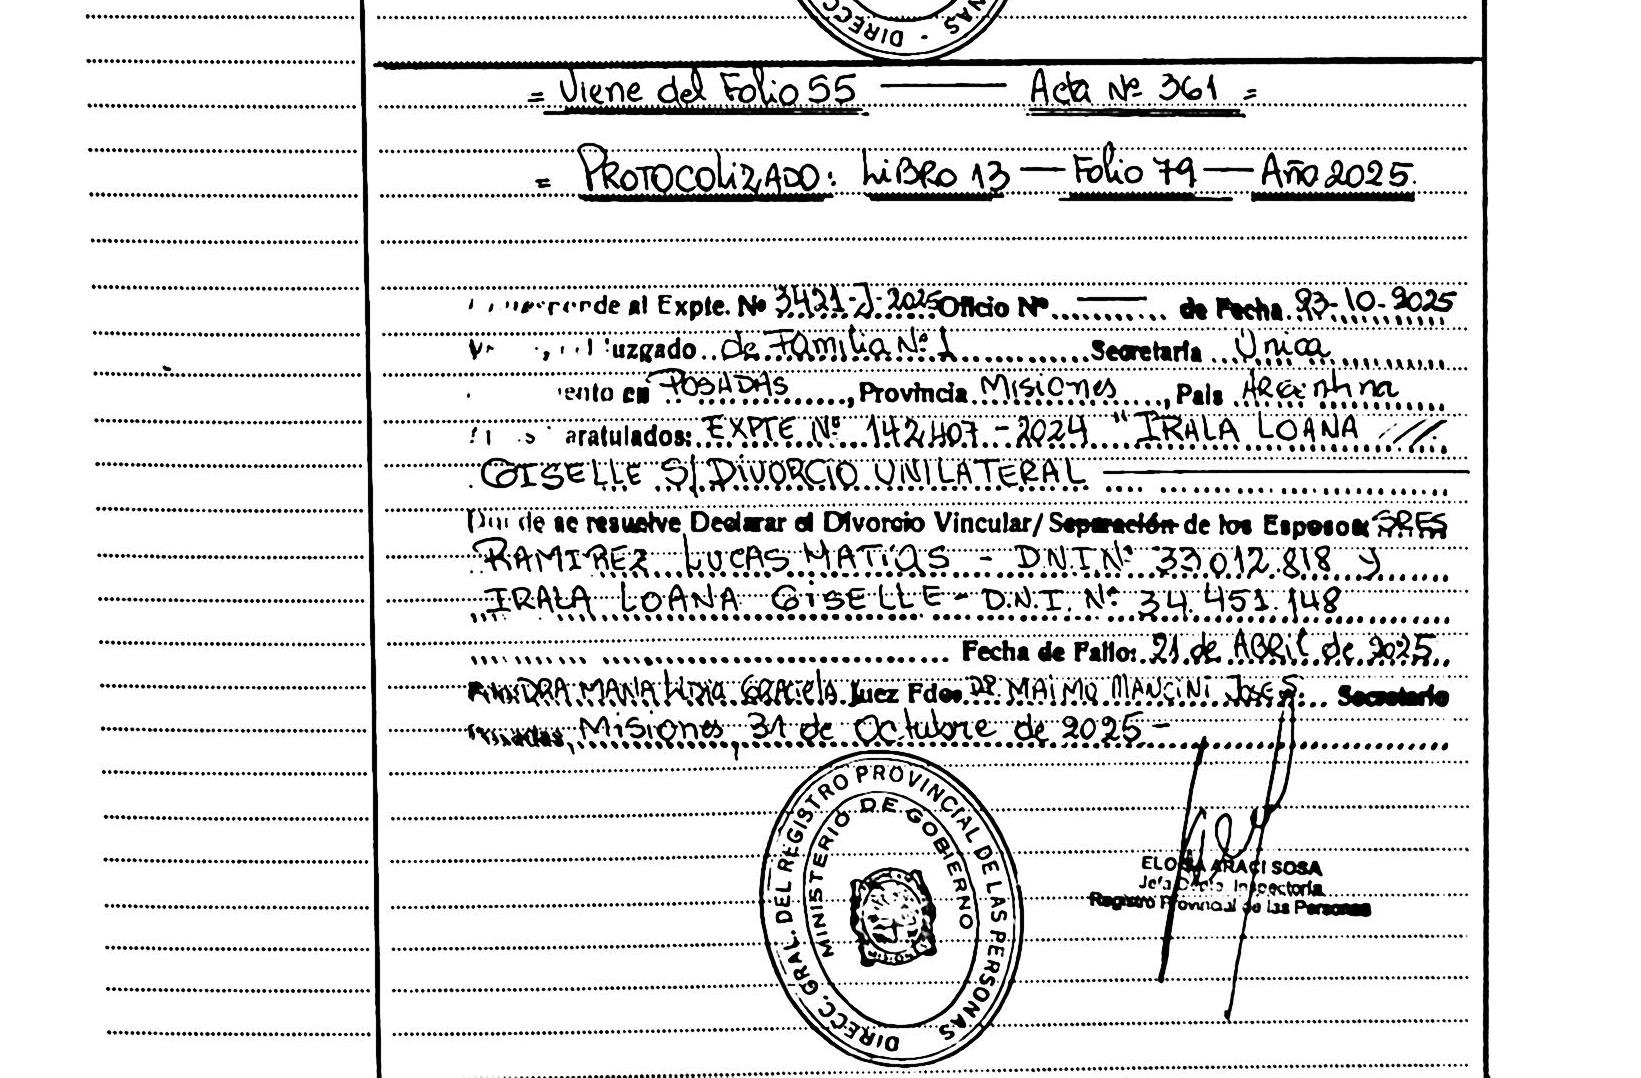 DIRECC NAS -
= Viene del Folio 55 —— Acta Nº 361 =
= PROTOCOLIZADO: LIBRO 13 — Folio 79 — Año 2025.
rde al Expte. Nº 3421-J-2025 Oficio Nº —— de Fecha 23-10-2025
uzgado de Familia Nº 1 Secretaría Única
ento en POSADAS, Provincia Misiones, País Argentina
aratulados: EXPTE Nº 142407-2024 "IRALA LOANA ///
GISELLE S/ DIVORCIO UNILATERAL ——
de se resuelve Declarar el Divorcio Vincular/Separación de los Esposos: SRES
RAMIREZ LUCAS MATIAS - D.N.I Nº 33.012.818 y
IRALA LOANA GISELLE - D.N.I. Nº 34.451.148
Fecha de Fallo: 21 de ABRIL de 2025.
GRACIELA Juez Fdo. DR. MAIMO MANCINI JOSE S. Secretario
Misiones, 31 de Octubre de 2025 -
DIRECC. GRAL. DEL REGISTRO PROVINCIAL DE LAS PERSONAS
MINISTERIO DE GOBIERNO
ELOISA ARACI SOSA
Jefa Dpto. Inspectoría
Registro Provincial de las Personas